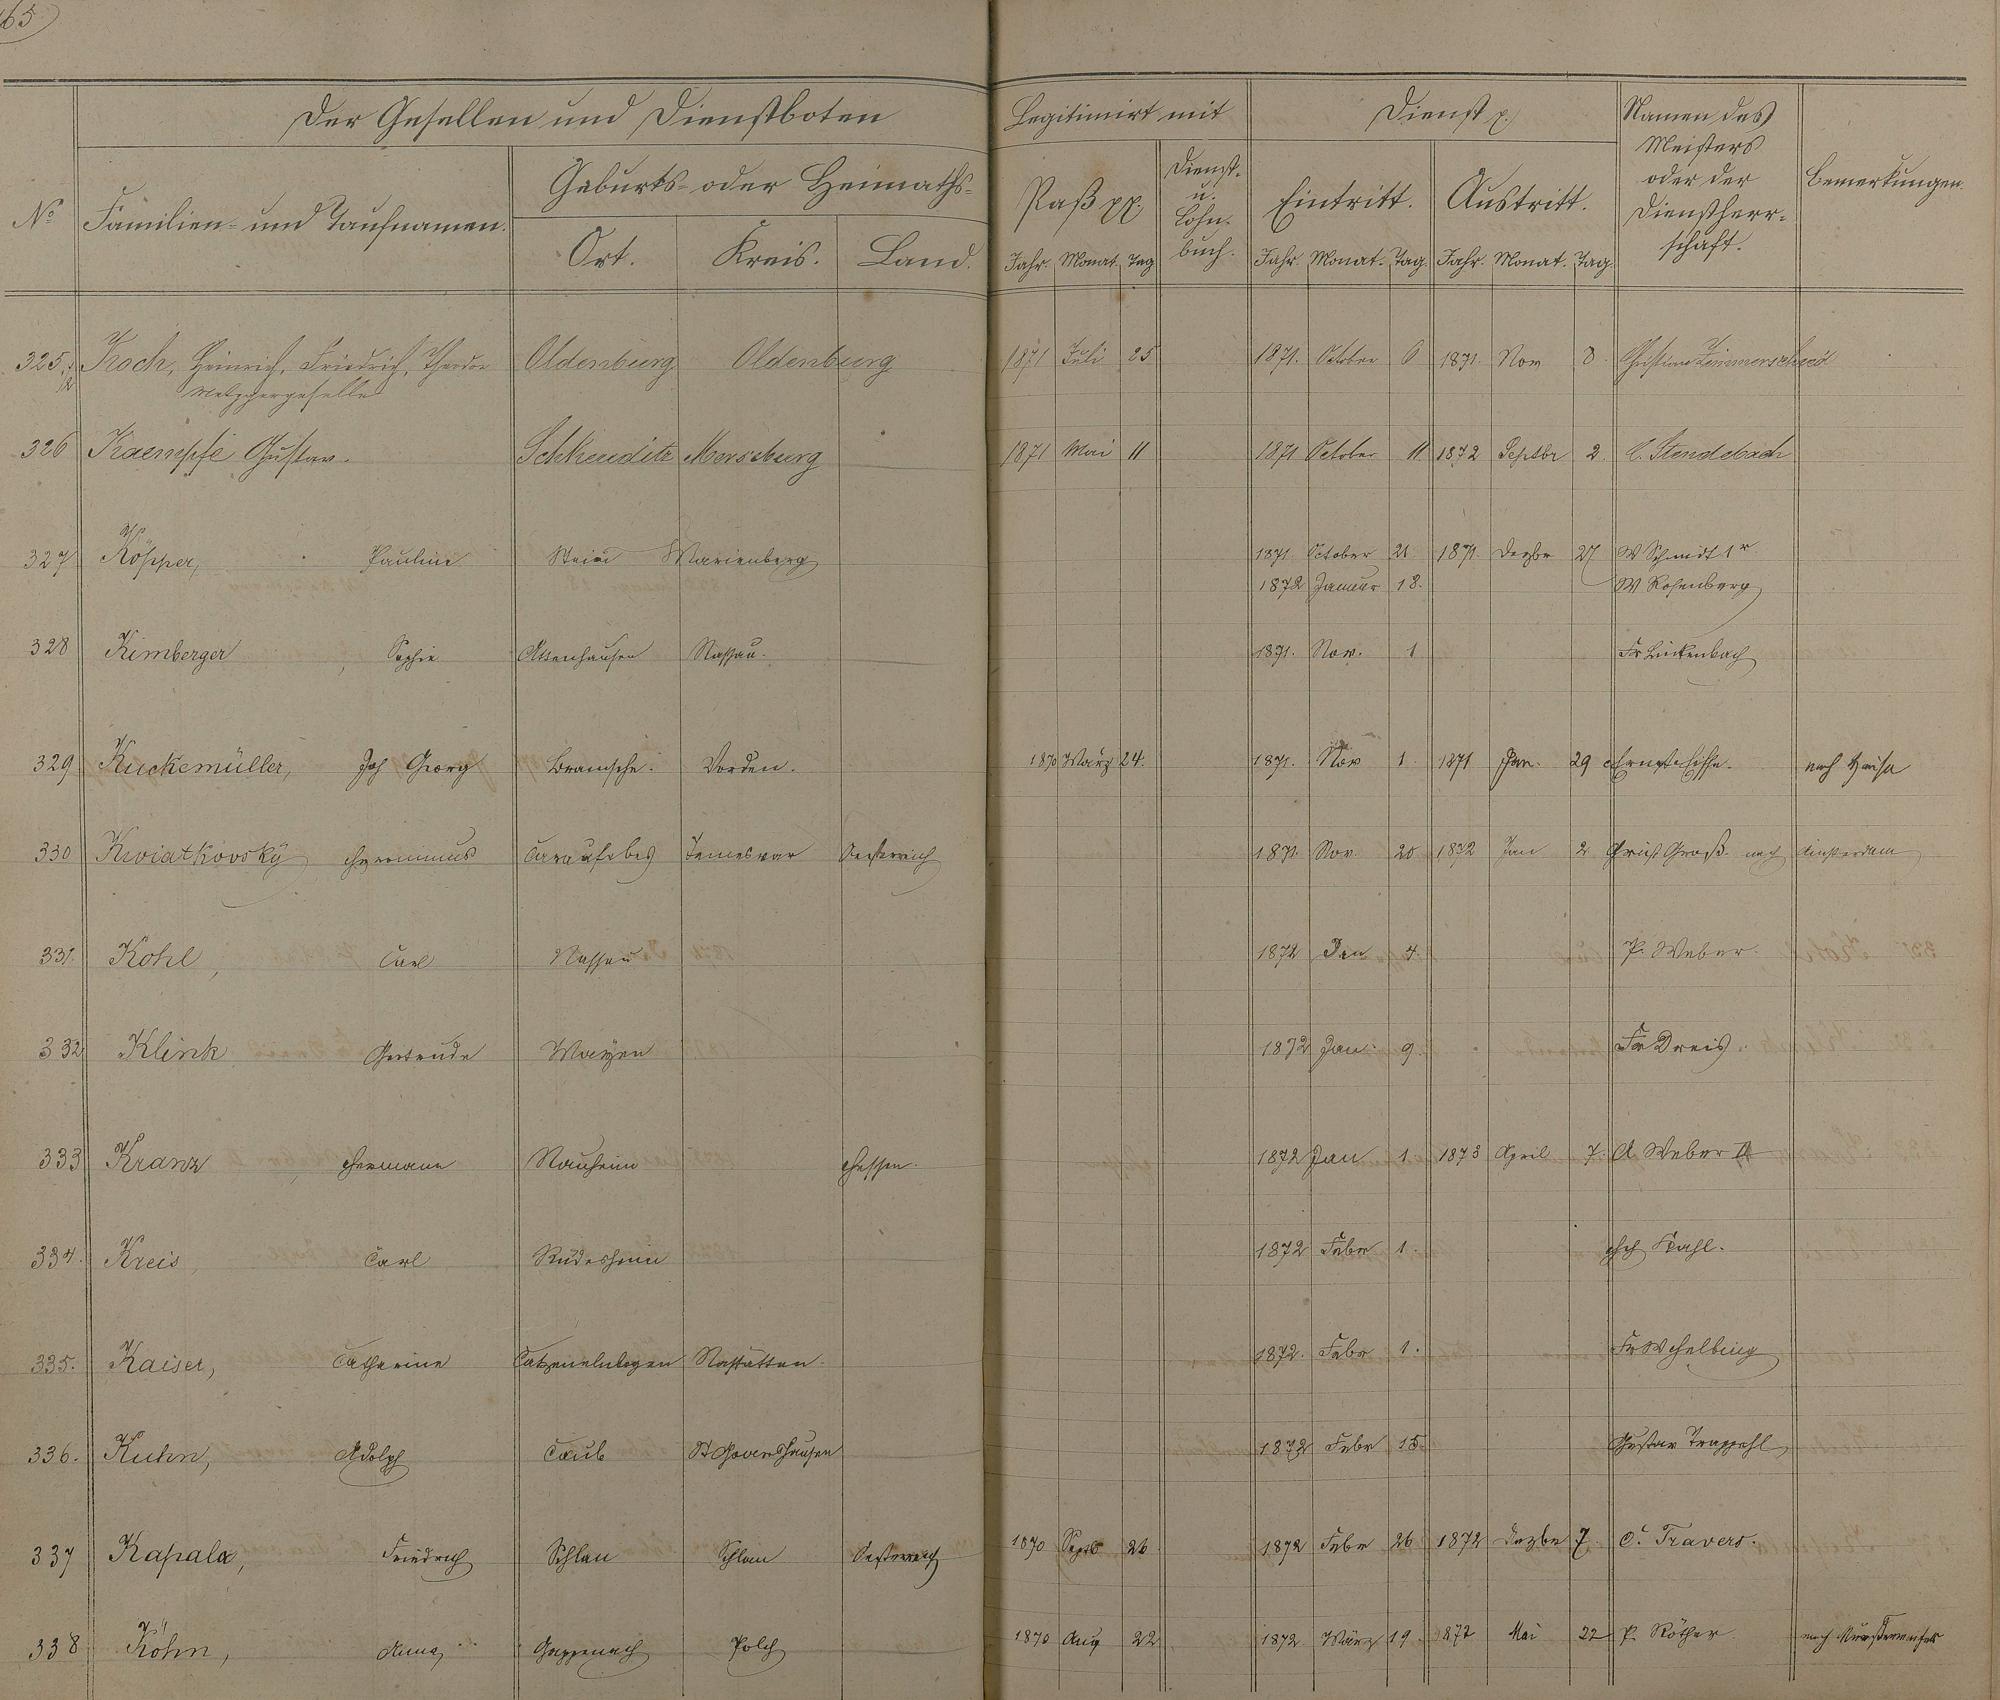 65
Der Gesellen und Dienstboten
Legitimirt mit
Dienst p.
Namen des
Meisters
oder der
Dienstherr-
schaft.
Bemerkungen.
No
Familien- und Taufnamen.
Geburts- oder Heimaths-
Ort. Kreis. Land.
Paß pp.
Jahr. Monat. Tag
Dienst-
u.
Lohn-
buch.
Eintritt. Austritt.
Jahr. Monat. Tag. Jahr. Monat. Tag.
325 1/2 Koch, Heinrich, Friedrich, Theodor Oldenburg Oldenburg 1871 Juli 25 1871. October 6 1871. Nov 8 Christian Zimmerschied
Metzgergeselle
326 Kaempfe Gustav. Schkeuditz Merseburg 1871 Mai 11 1871 October 11. 1872 Septbr 2. C. Stendebach
327 Köpper, Pauline Stein Marienberg 1871. October 21. 1871. Dezbr 27 W Schmidt 1r
1872 Januar 18. W Rosenberg
328 Kimberger, Sophie Attenhausen Nassau. 1871. Nov. 1 Fr Linkenbach
329 Kuckemüller, Joh Georg Bramsche. Vörden. 1870 März 24. 1871. Nov 1. 1871 Jan. 29 nach Hause
330 Kwiatkovsky Hyronimus Caransebes Temesvar Oesterreich 1871. Nov. 20 1872 Jan 2 Christ. Groß. nach Amsterdam
331. Kohl, Carl Nassau 1872 Jan 4. P. Weber.
332 Klink Gertrude Mayen 1872 Jan. 9. Fr Dreis.
333 Kranz, Hermann Nauheim Hessen. 1872 Jan 1. 1873 April 7. A Weber II
334. Kreis, Carl Rüdesheim 1872 Febr 1. Hch Stahl.
335. Kaiser, Catharine Catzenelnbogen Nastätten. 1872. Febr 1. Fr W Helbing
336. Kuhn, Adolph Caub St Goarshausen 1872 Febr 15. Gustav Trappehl
337 Kapala, Friedrich Schlan Schlan Oesterreich 1870 Septb 26 1872 Febr 26 1872 Dezbr 7. C. Travers.
338 Köhn, Anna Gappenach Polch 1870 Aug 22 1872. März 19. 1872 Mai 22 P. Röther. nach Münstermaifeld